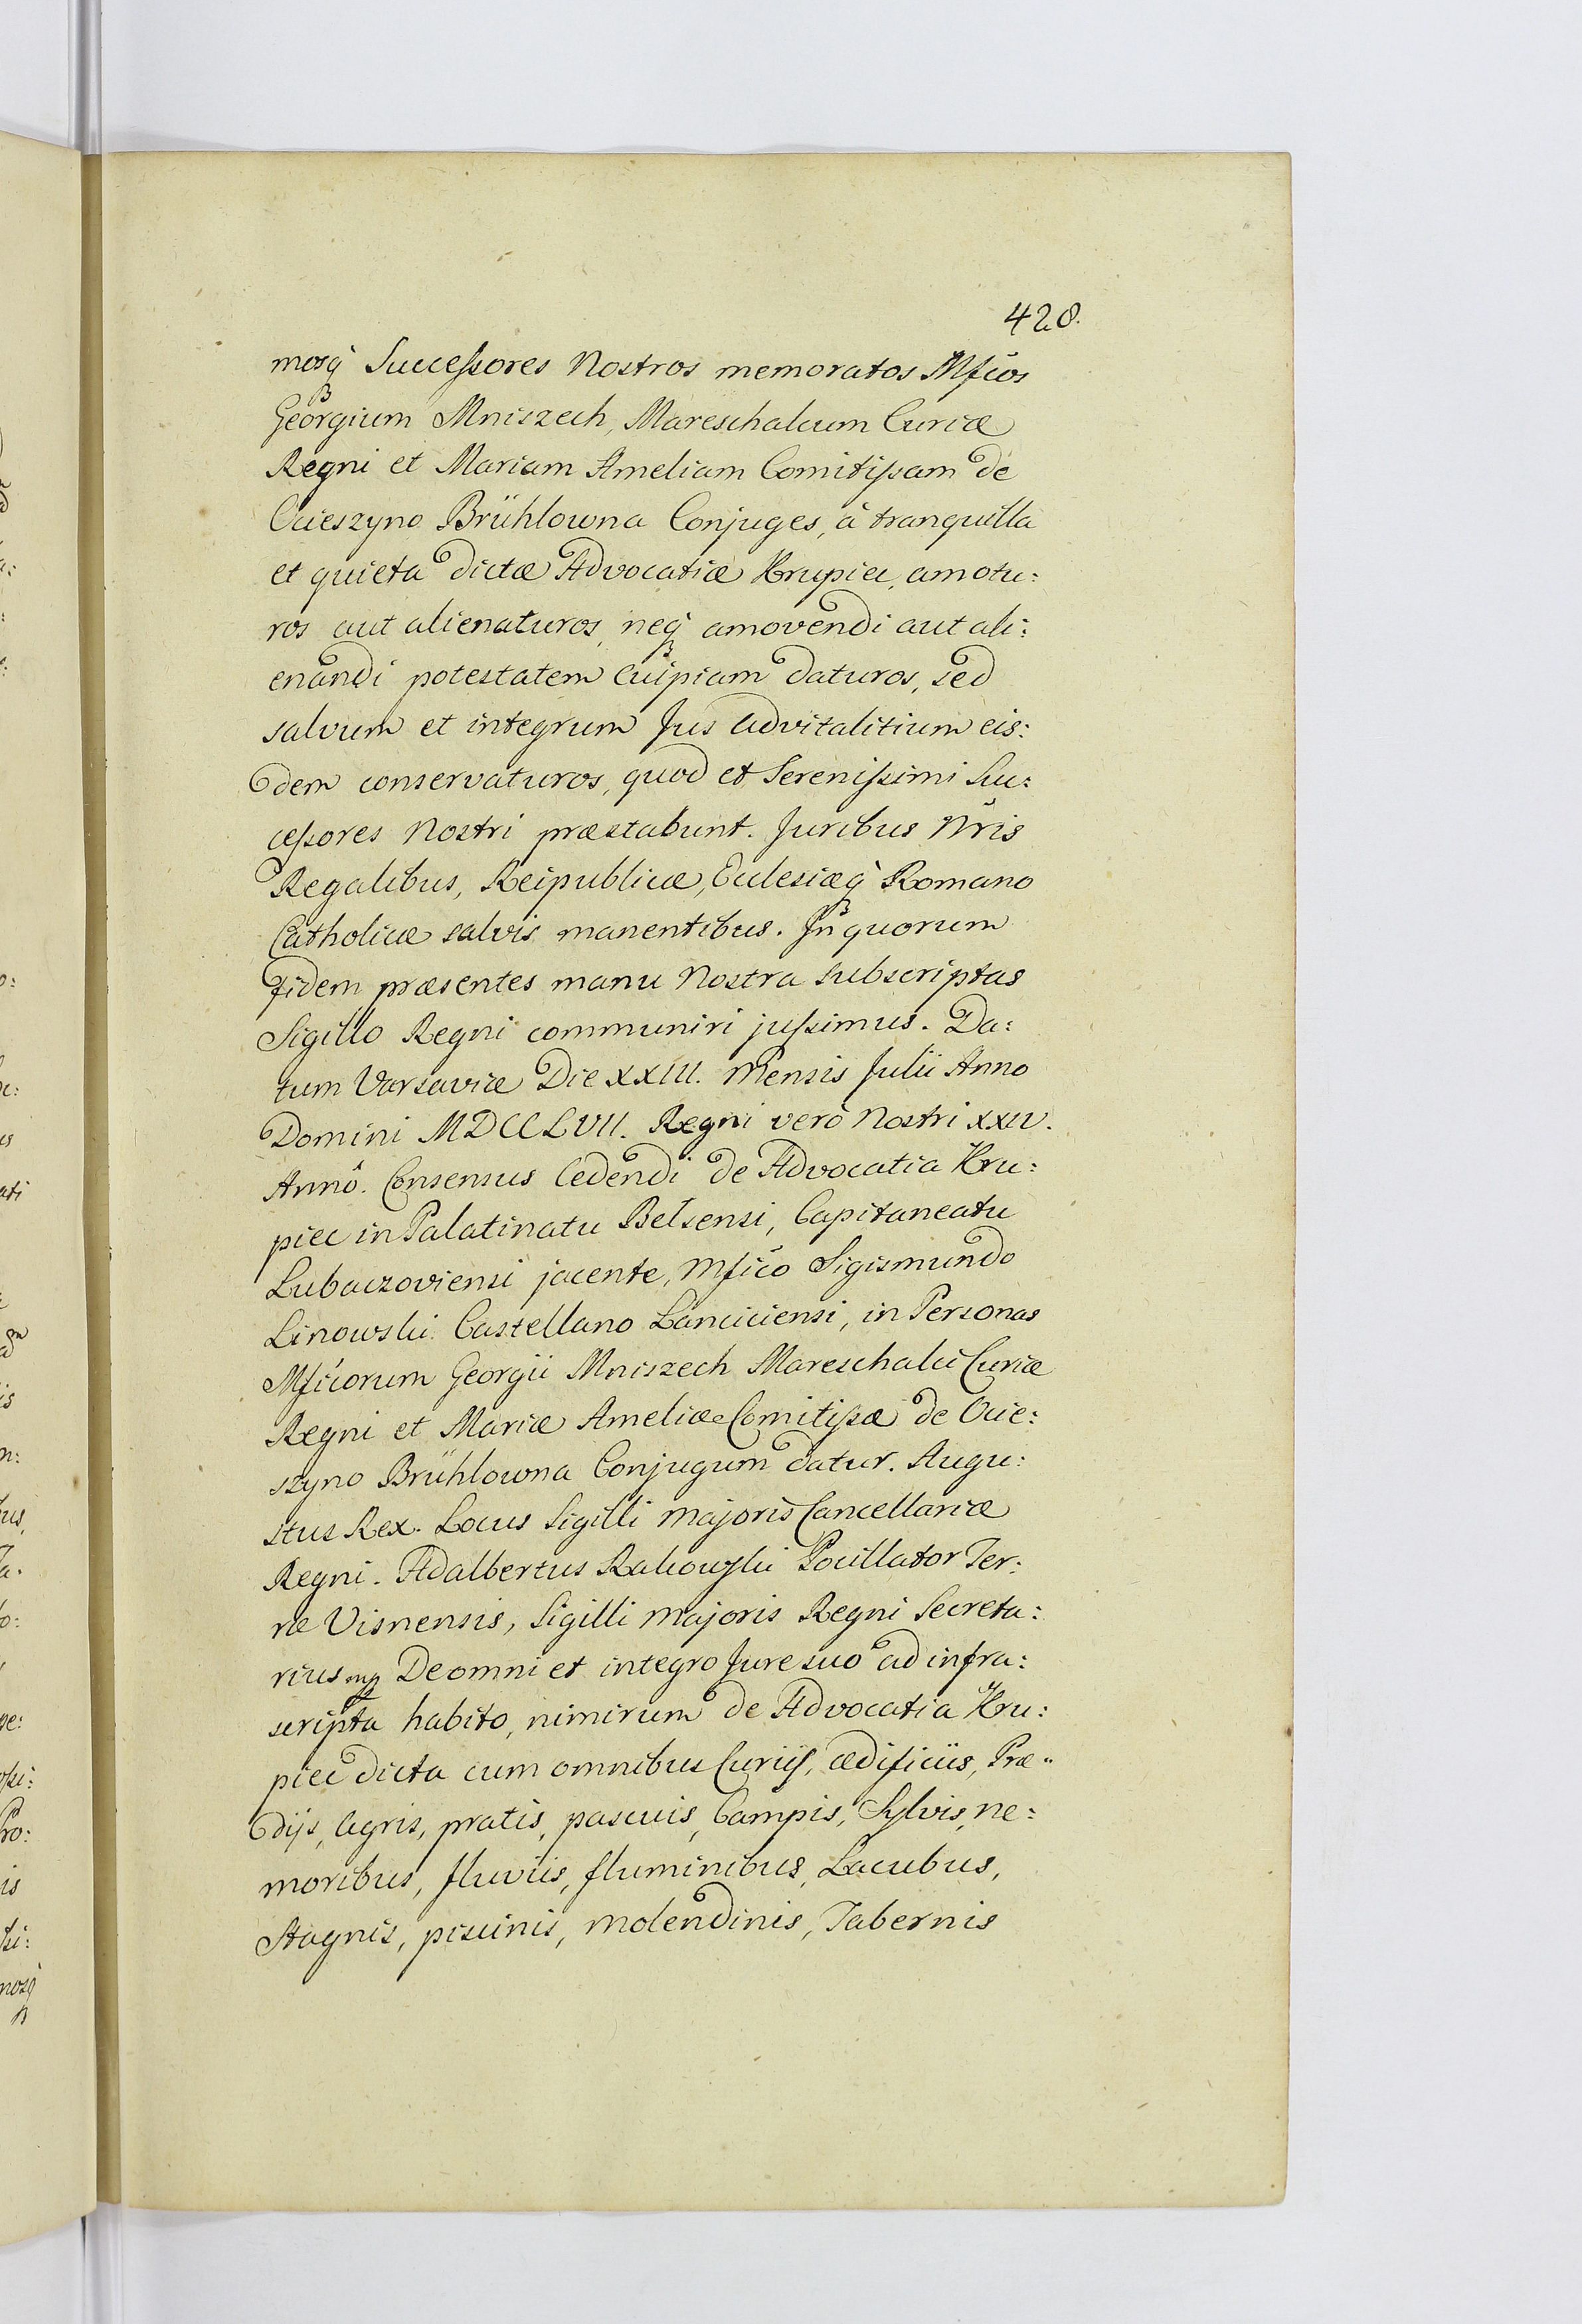 428.
mosq̀ Successores Nostros memoratos Mficos
Georgium Mniszech, Mareschalcum Curiæ
Regni et Mariam Ameliam Comitissam de
Ocieszyno Brühlowna Conjuges, à tranquilla
et quieta dictæ Advocatiæ Krupiec, amotu:
ros aut alienaturos, neq̀ amovendi aut ali:
enandi potestatem cuipiam daturos, sed
salvum et integrum Jus advitalitium eis:
dem conservaturos, quod et Serenissimi Suc:
cessores Nostri præstabunt. Juribus Nris
Regalibus, Reipublicæ, Ecclesiæq̀ Romano
Catholicæ salvis manentibus. In quorum
fidem præsentes manu Nostra subscriptas
Sigillo Regni communiri jussimus. Da:
tum Varsaviæ Die XXIII. Mensis Julii Anno
Domini MDCCLVII. Regni verò Nostri XXIV.
Annô. Consensus Cedendi de Advocatia Kru:
piec in Palatinatu Belsensi, Capitaneatu
Lubaczoviensi jacente, Mfico Sigismundo
Linowski Castellano Lanciciensi, in Personas
Mficorum Georgii Mniszech Mareschalci Curiæ
Regni et Mariæ Ameliæ Comitissæ de Ocie:
szyno Brühlowna Conjugum datur. Augu:
stus Rex. Locus Sigilli Majoris Cancellariæ
Regni. Adalbertus Rakowski Pocillator Ter:
ræ Visnensis, Sigilli Majoris Regni Secreta:
rius mp De omni et integro Jure suo ad infra:
scripta habito, nimirum de Advocatia Kru:
piec dicta cum omnibus Curijs, ædificiis, Præ"
dijs, Agris, pratis, pascuis, Campis, Sylvis, ne:
moribus, fluviis, fluminibus, Lacubus,
Stagnis, piscinis, Molendinis, Tabernis